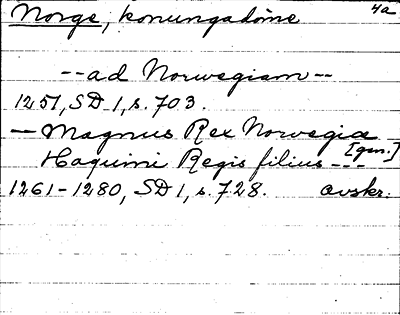 Norge, konungadöme 4a
--ad Norwegiam--
1251, SD 1, s. 703.
— Magnus Rex Norwegiæ
Haquini Regis filius --- [gen.]
1261-1280, SD 1, s. 728. avskr.